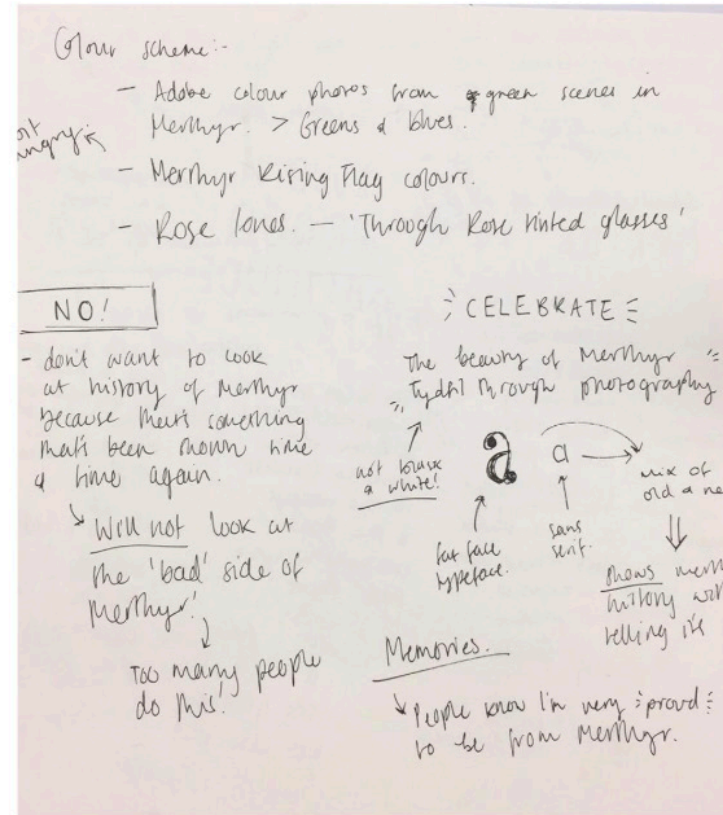 Colour scheme:-
- Adobe colour photos from green scenes in
Merthyr. > Greens & blues.
- Merthyr Rising Flag colours.
- Rose tones. — 'Through Rose tinted glasses'
NO!
- don't want to look
at history of Merthyr
because that's something
that's been shown time
& time again.
Will not look at
the 'bad' side of
Merthyr!
Too many people
do this!
CELEBRATE
The beauty of Merthyr
Tydfil through photography
not black
& white!
a
a
fat face
typeface.
sans
serif.
mix of
old a
shows
history
telling its
Memories.
People know I'm very proud
to be from Merthyr.